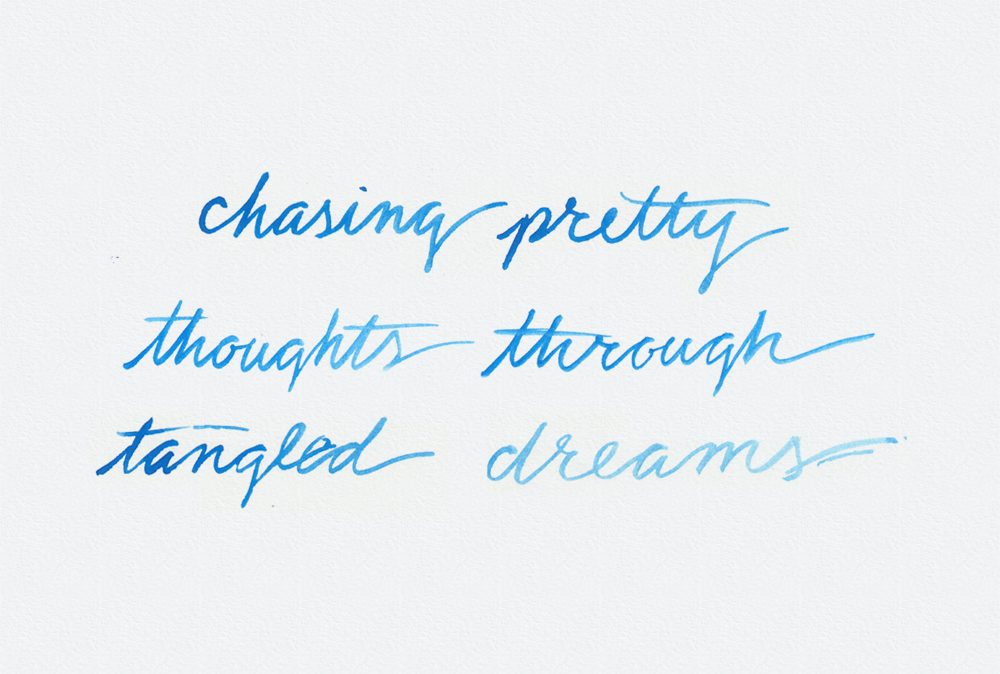 chasing pretty
thoughts through
tangled dreams